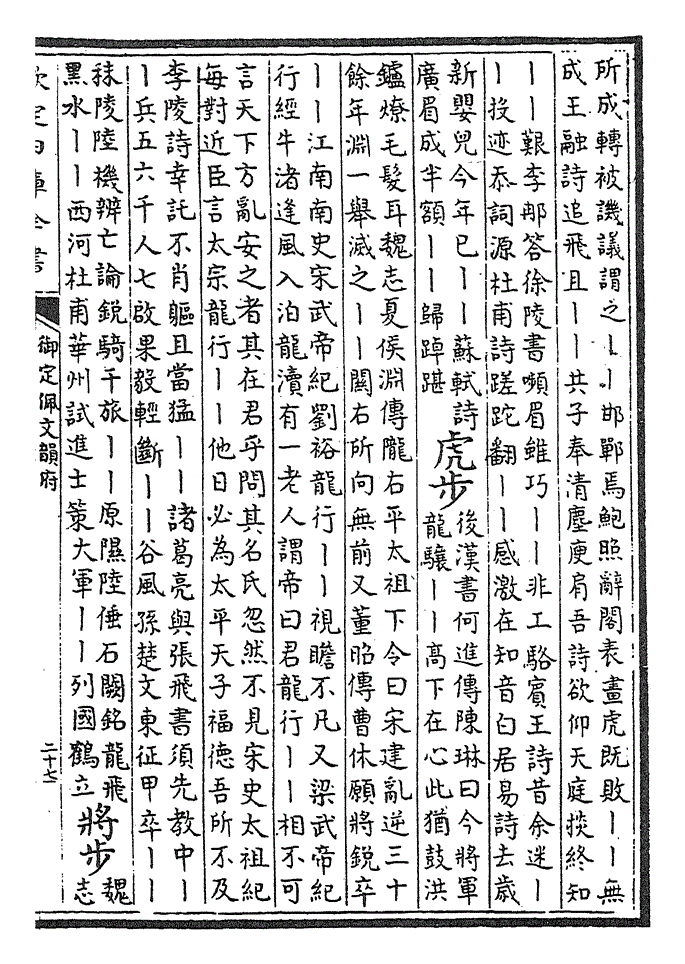 所成轉被譏議謂之｜｜邯鄲焉鮑照辭閣表畫虎既敗｜｜無
成王融詩追飛且｜｜共子奉清塵庾肩吾詩欲仰天庭掞終知
｜｜艱李那答徐陵書嚬眉雖巧｜｜非工駱賓王詩昔余迷｜
｜投迹忝詞源杜甫詩蹉跎翻｜｜感激在知音白居易詩去歲
新嬰兒今年已｜｜蘇軾詩
廣眉成半額｜｜歸踔踸
虎步
後漢書何進傳陳琳曰今將軍
龍驤｜｜高下在心此猶鼓洪
鑪燎毛髮耳魏志夏侯淵傳隴右平太祖下令曰宋建亂逆三十
餘年淵一舉滅之｜｜關右所向無前又董昭傳曹休願將銳卒
｜｜江南南史宋武帝紀劉裕龍行｜｜視瞻不凡又梁武帝紀
行經牛渚逢風入泊龍瀆有一老人謂帝曰君龍行｜｜相不可
言天下方亂安之者其在君乎問其名氏忽然不見宋史太祖紀
每對近臣言太宗龍行｜｜他日必為太平天子福德吾所不及
李陵詩幸託不肖軀且當猛｜｜諸葛亮與張飛書須先教中｜
｜兵五六千人七啟果毅輕斷｜｜谷風孫楚文東征甲卒｜｜
秣陵陸機辨亡論銳騎千旅｜｜原隰陸倕石闕銘龍飛
黑水｜｜西河杜甫華州試進士策大軍｜｜列國鶴立
將步
魏
志
欽定四庫全書
御定佩文韻府
二十七